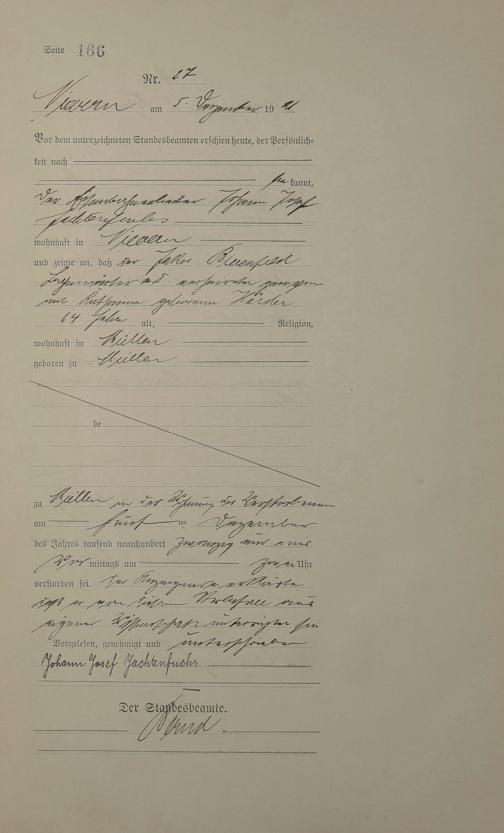 Seite 166
Nr. 27
Nievern am 5. Dezember 19 21
Vor dem unterzeichneten Standesbeamten erschien heute, der Persönlich-
keit nach
kannt,
der Johann Josef
wohnhaft in Nievern
und zeigte an, daß der Jakob
a. D. verheiratet gewesen
mit Katharina geborenen Härder
64 Jahre alt, Religion,
wohnhaft in Miellen
geboren zu Miellen
de
zu Miellen in der Wohnung des Verstorbenen
am fünf ten Dezember
des Jahres tausend neunhundert zwanzig und eins
Vor mittags um zwei Uhr
verstorben sei. Der Anzeigende erklärte
daß er von diesem Sterbefalle aus
eigener Wissenschaft unterrichtet sei
Vorgelesen, genehmigt und unterschrieben
Johann Josef Jachtenfuchs
Der Standesbeamte.